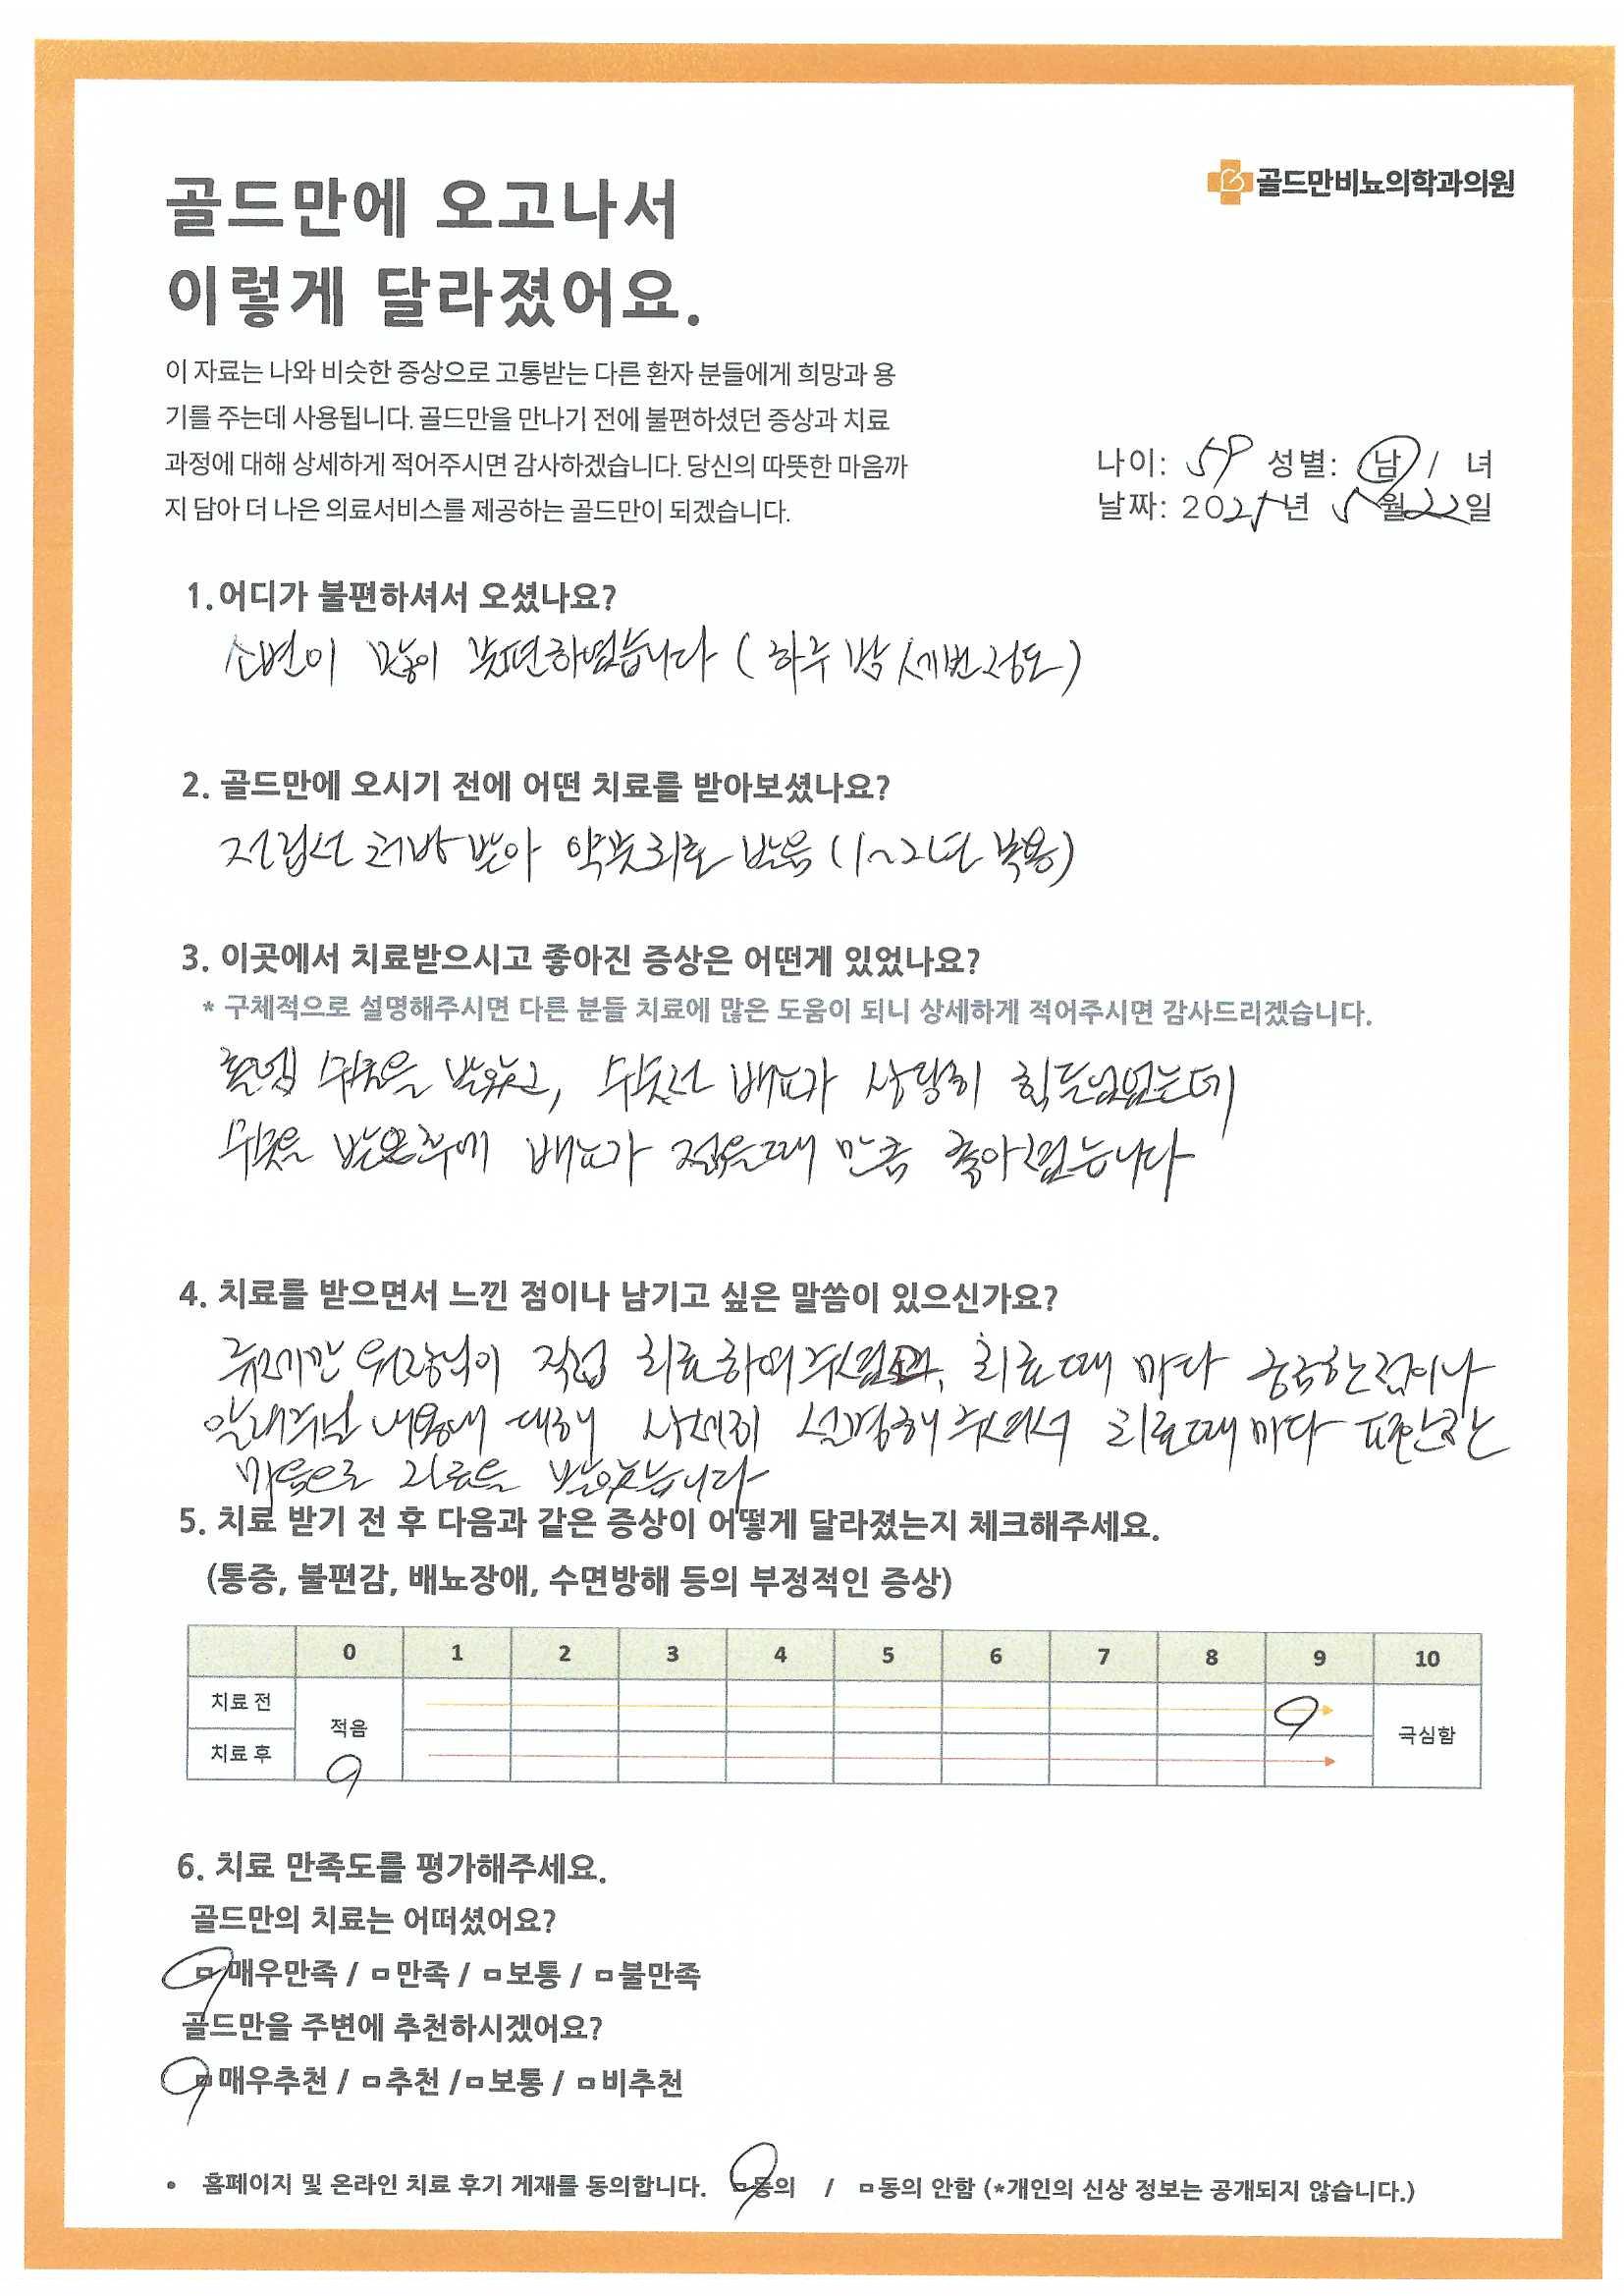 골드만비뇨의학과의원
골드만에 오고나서
이렇게 달라졌어요.
이 자료는 나와 비슷한 증상으로 고통받는 다른 환자 분들에게 희망과 용
기를 주는데 사용됩니다. 골드만을 만나기 전에 불편하셨던 증상과 치료
과정에 대해 상세하게 적어주시면 감사하겠습니다. 당신의 따뜻한 마음까
지 담아 더 나은 의료서비스를 제공하는 골드만이 되겠습니다.
나이: 59 성별: 남 / 녀
날짜: 2025년 5월 22일
1. 어디가 불편하셔서 오셨나요?
소변이 많이 불편하였습니다 (하루 밤 세번정도)
2. 골드만에 오시기 전에 어떤 치료를 받아보셨나요?
전립선 처방 받아 약물치료 받음 (1~2년 복용)
3. 이곳에서 치료받으시고 좋아진 증상은 어떤게 있었나요?
* 구체적으로 설명해주시면 다른 분들 치료에 많은 도움이 되니 상세하게 적어주시면 감사드리겠습니다.
받았고, 배뇨가 상당히 힘들었었는데
받은후에 배뇨가 젊을때 만큼 좋아졌습니다
4. 치료를 받으면서 느낀 점이나 남기고 싶은 말씀이 있으신가요?
원장님이 직접 치료하여 치료때 마다 궁금한점이나
내용에 대해 상세히 설명해 주셔서 치료때 마다 편안한
마음으로 치료를 받았습니다
5. 치료 받기 전 후 다음과 같은 증상이 어떻게 달라졌는지 체크해주세요.
(통증, 불편감, 배뇨장애, 수면방해 등의 부정적인 증상)
0 1 2 3 4 5 6 7 8 9 10
치료 전
적음
극심함
치료 후
6. 치료 만족도를 평가해주세요.
골드만의 치료는 어떠셨어요?
매우만족 / 만족 / 보통 / 불만족
골드만을 주변에 추천하시겠어요?
매우추천 / 추천 / 보통 / 비추천
• 홈페이지 및 온라인 치료 후기 게재를 동의합니다. 동의 / 동의 안함 (*개인의 신상 정보는 공개되지 않습니다.)